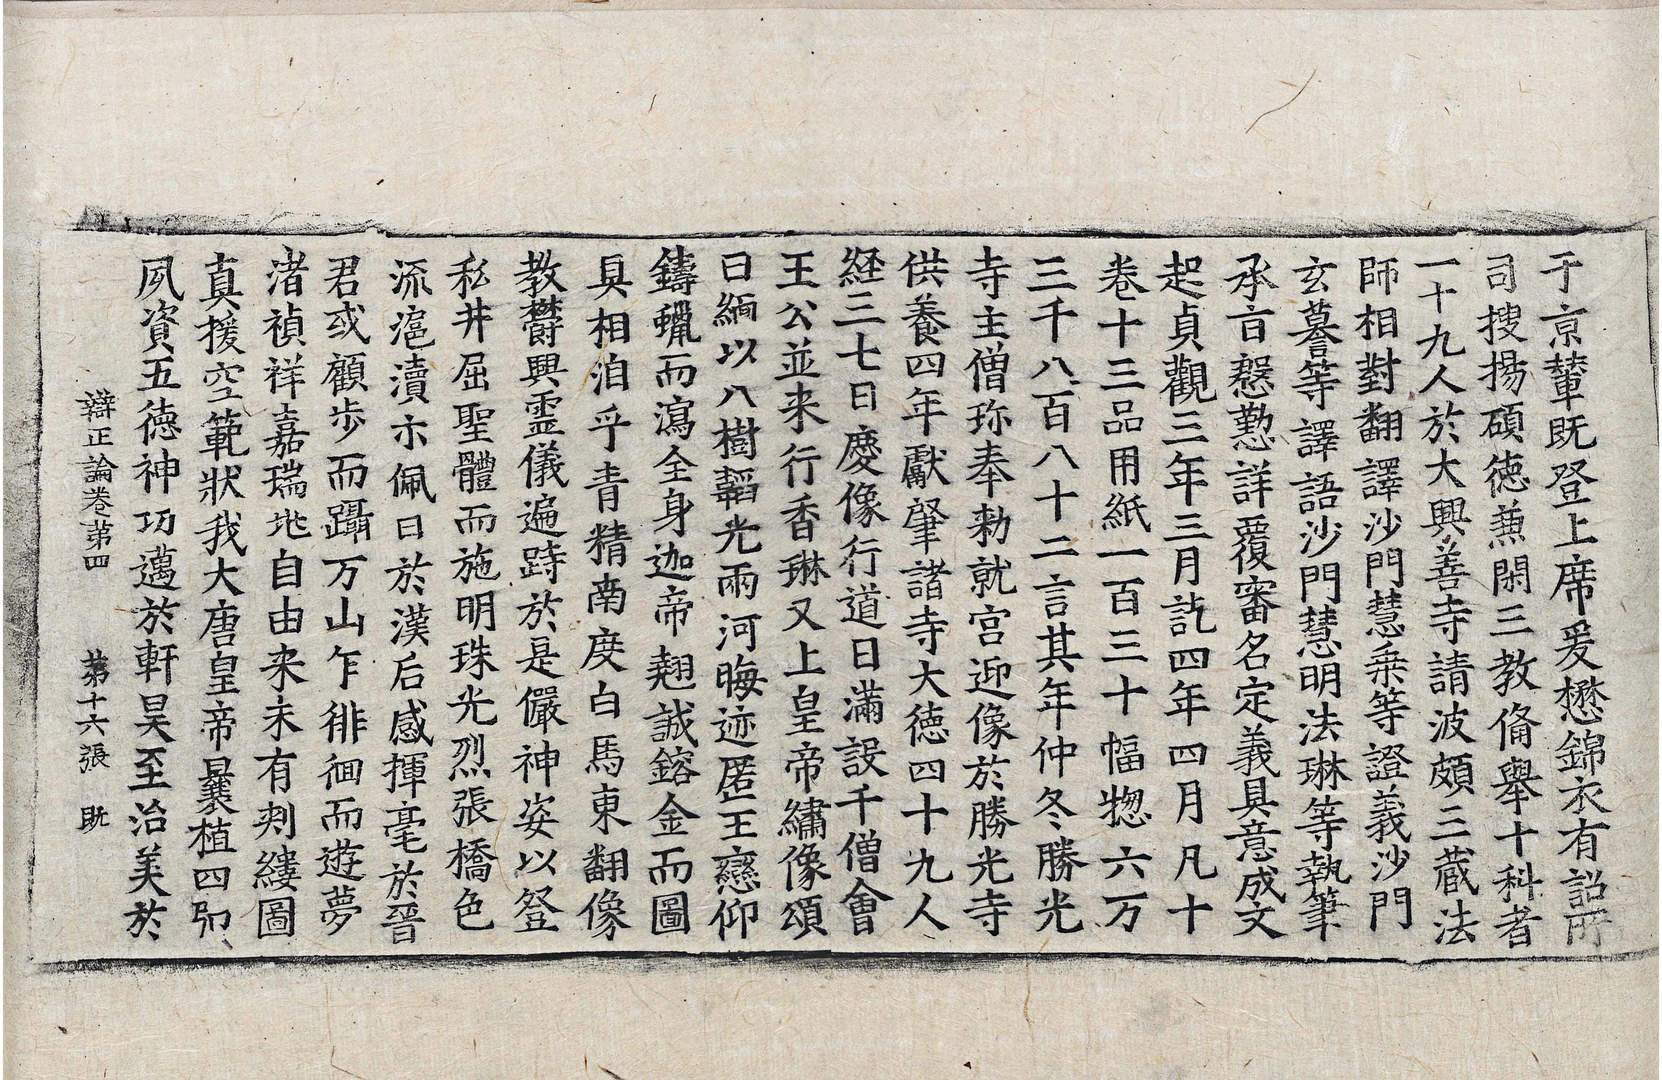 于京輦既登上席爰懋錦衣有詔所
司搜揚碩德兼閑三教俻舉十科者
一十九人於大興善寺請波頗三藏法
師相對翻譯沙門慧乗等證義沙門
玄謩等譯語沙門慧明法琳等執筆
承旨慇懃詳覆審名定義具意成文
起貞觀三年三月訖四年四月凡十
卷十三品用紙一百三十幅惣六万
三千八百八十二言其年仲冬勝光
寺主僧珎奉勑就宫迎像於勝光寺
供養四年獻肇諸寺大德四十九人
経三七日慶像行道日滿設千僧會
王公並来行香琳又上皇帝繡像頌
曰緬以八樹韜光兩河晦迹匿王戀仰
鑄蠟而瀉全身迦帝翹誠鎔金而圖
真相洎乎青精南度白馬東翻像
教欝興霊儀遍跱於是儼神姿以登
私井屈聖體而施明珠光烈張橋色
流滬瀆示佩日於漢后感揮毫於晉
君或顧步而躡万山乍徘徊而遊夢
渚禎祥嘉瑞非自由来未有刾縷圖
真援空範狀我大唐皇帝曩植四弘
夙資五德神功邁於軒昊至治美於
辯正論卷第四 第十六張 旣